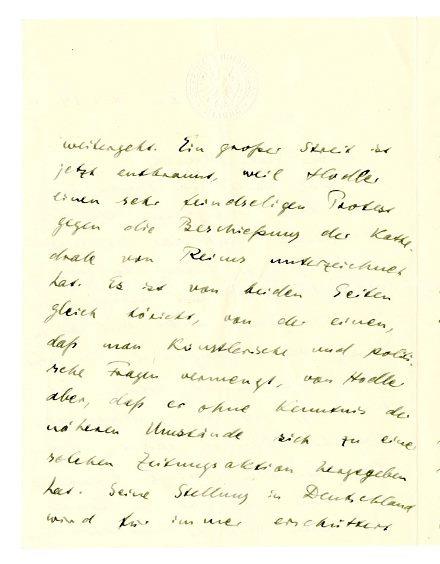 weitergeht. Ein großer Streit ist
jetzt entbrannt, weil Hodler
einen sehr feindseligen Protest
gegen die Beschießung der Kathe-
drale von Reims unterzeichnet
hat. Es ist von beiden Seiten
gleich töricht, von der einen,
daß man Künstlerische und politi-
sche Fragen vermengt, von Hodler
aber, daß er ohne Kenntnis der
näheren Umstände sich zu einer
solchen Zeitungsaktion hergegeben
hat. Seine Stellung in Deutschland
wird für immer erschüttert